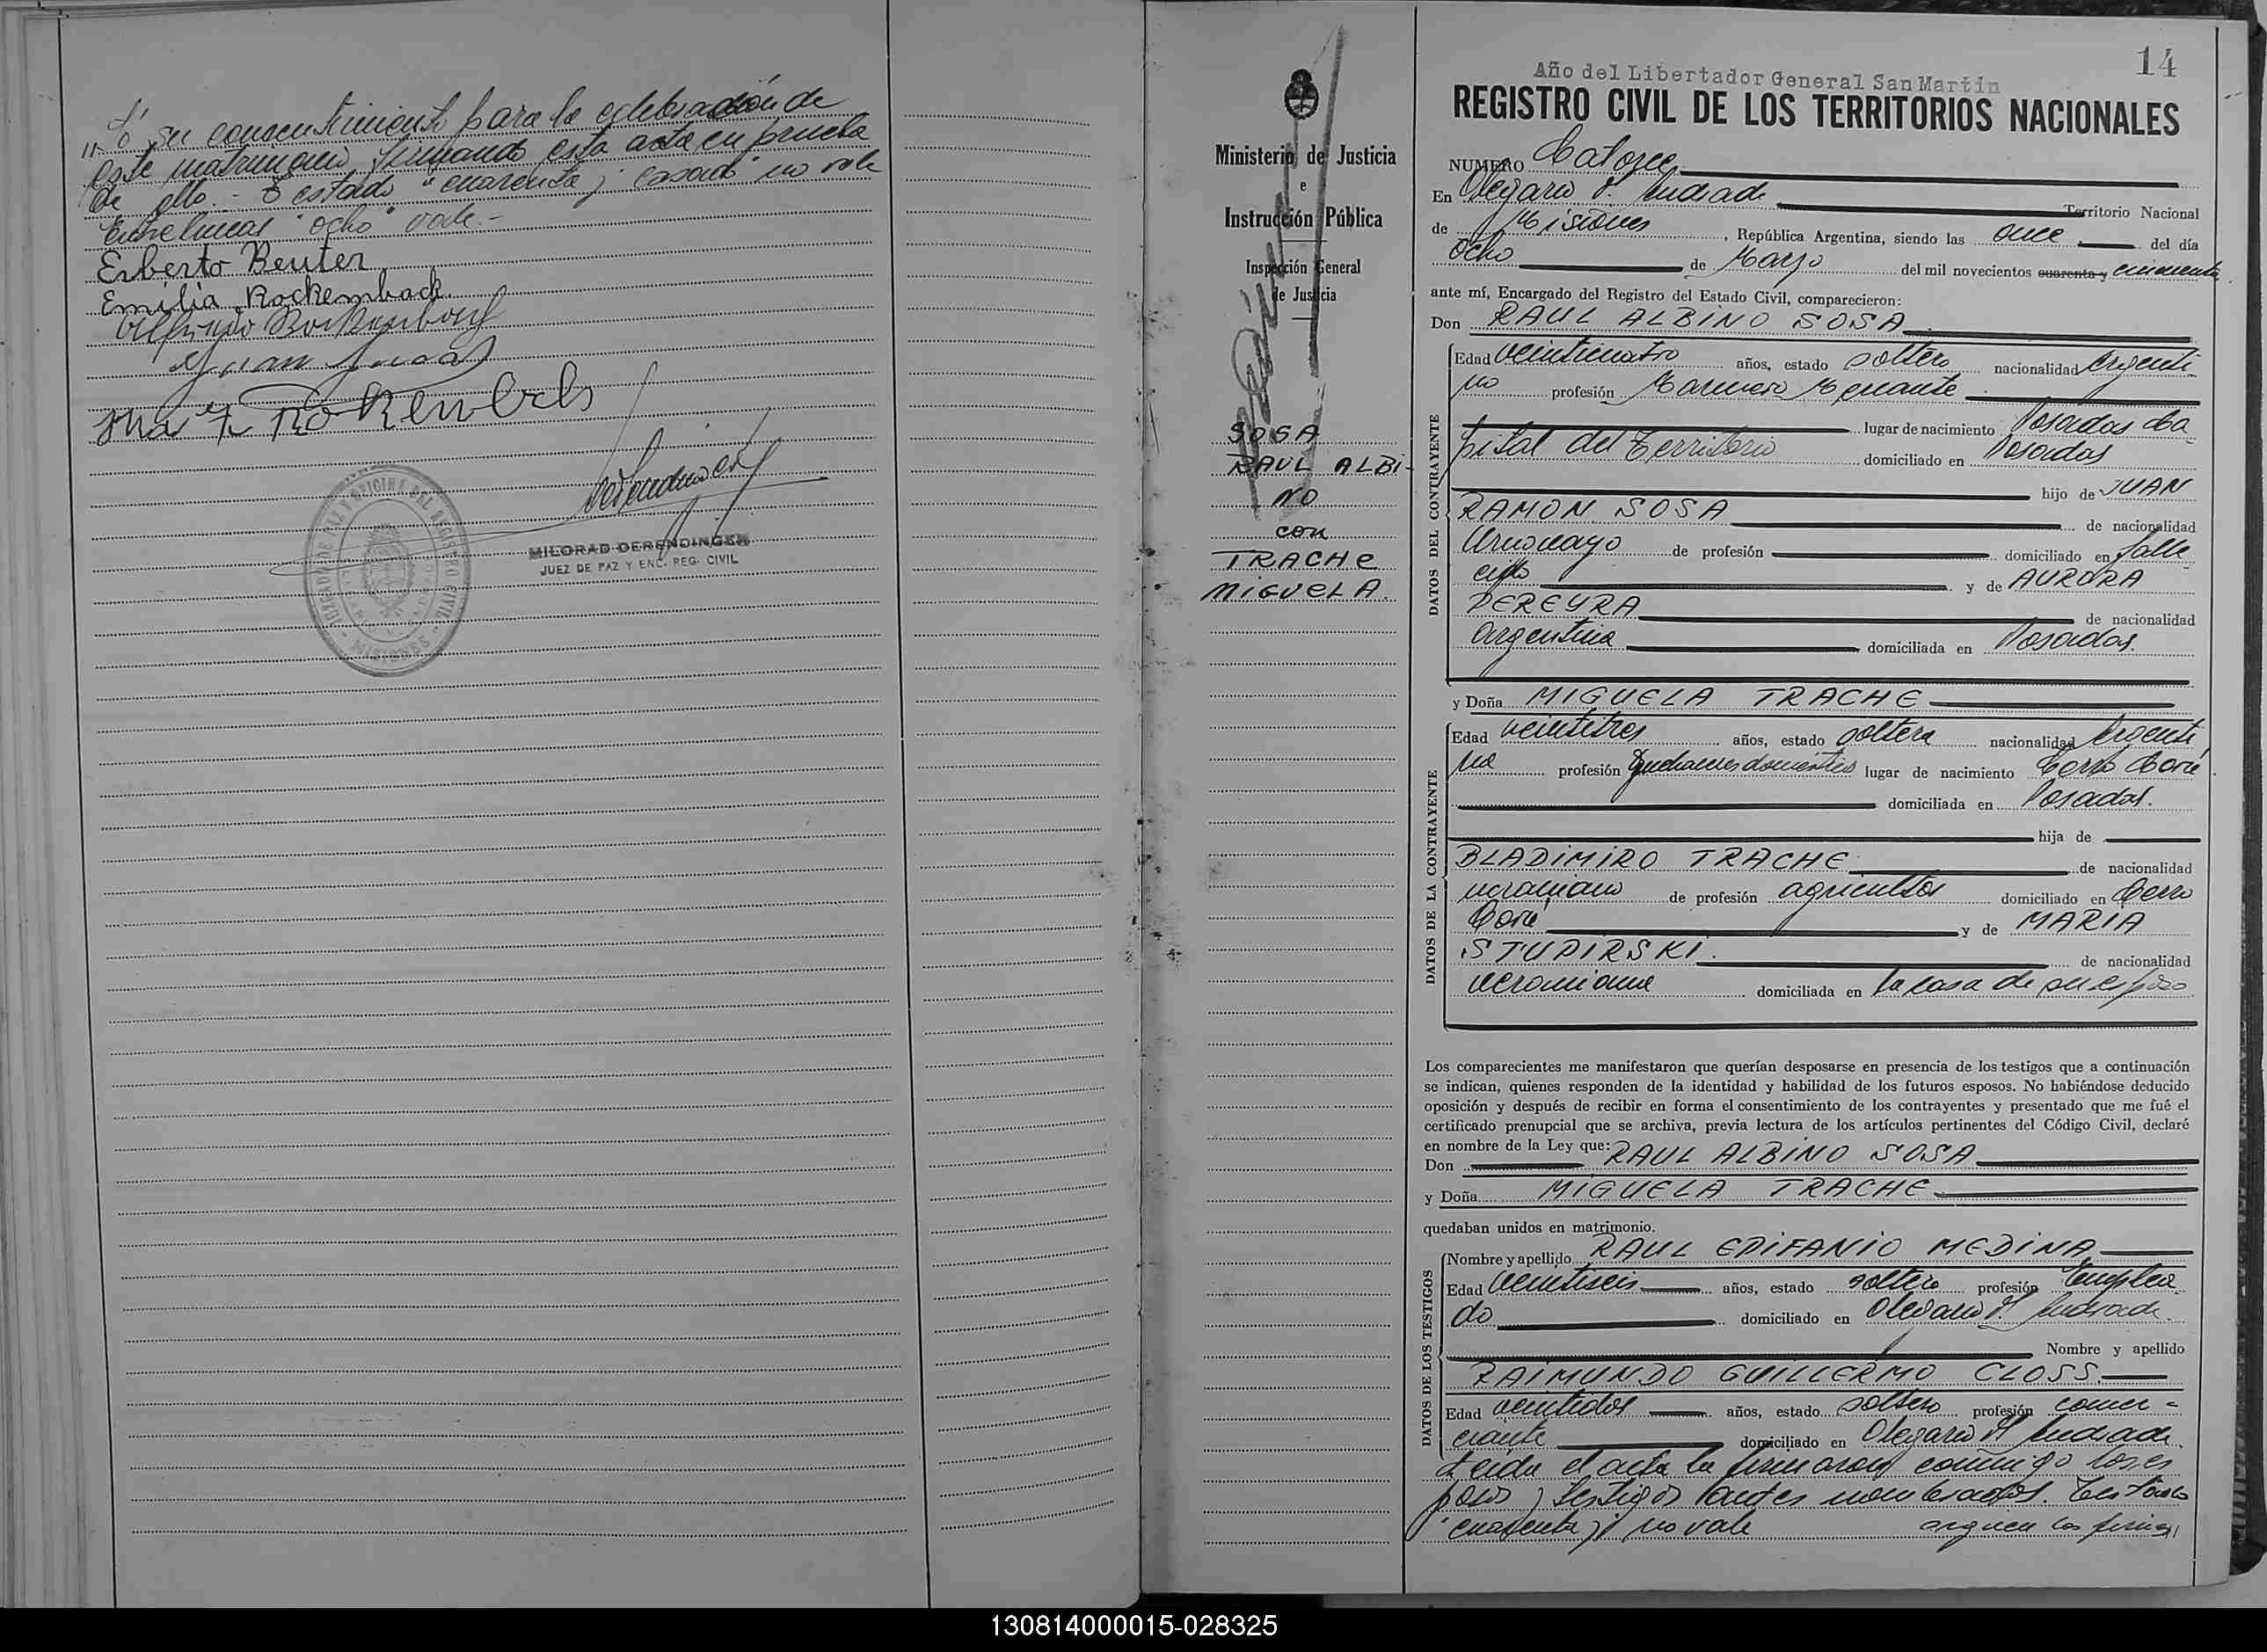 "...ó su consentimiento para la celebración de
este matrimonio, firmando esta acta en prueba
de ello.- Testado "cuarenta y casado" no vale
Entre lineas "ocho" vale.-
Erberto Beuter
Emilia Rockembach.
Alfredo Rockembach
Juan
MILORAD DERENDINGER
JUEZ DE PAZ Y ENC. REG. CIVIL
JUZGADO DE PAZ Y OFICINA DEL REGISTRO CIVIL
MISIONES
Ministerio de Justicia
e
Instrucción Pública
Inspección General
de Justicia
SOSA
RAUL ALBI-
NO
con
TRACHE
MIGUELA.
14
Año del Libertador General San Martín
REGISTRO CIVIL DE LOS TERRITORIOS NACIONALES
NUMERO Catorce
En Olegario V. Andrade Territorio Nacional
de Misiones, República Argentina, siendo las once del día
Ocho de Marzo del mil novecientos cuarenta y cincuenta
ante mí, Encargado del Registro del Estado Civil, comparecieron:
Don RAUL ALBINO SOSA
DATOS DEL CONTRAYENTE
Edad veinticuatro años, estado soltero nacionalidad Argenti-
no profesión Marinero Mercante
lugar de nacimiento Posadas Ca-
pital del Territorio domiciliado en Posadas
hijo de JUAN
RAMON SOSA de nacionalidad
Uruguayo de profesión domiciliado en falle
cido y de AURORA
PEREYRA de nacionalidad
Argentina domiciliada en Posadas.
y Doña MIGUELA TRACHE
DATOS DE LA CONTRAYENTE
Edad veintitres años, estado soltera nacionalidad Argenti
na profesión Quehaceres domesticos lugar de nacimiento Cerro Corá
domiciliada en Posadas.
hija de
BLADIMIRO TRACHE de nacionalidad
ucraniano de profesión agricultor domiciliado en Cerro
Corá y de MARIA
STUPIRSKI. de nacionalidad
ucraniana domiciliada en la casa de su esposo
Los comparecientes me manifestaron que querían desposarse en presencia de los testigos que a continuación
se indican, quienes responden de la identidad y habilidad de los futuros esposos. No habiéndose deducido
oposición y después de recibir en forma el consentimiento de los contrayentes y presentado que me fué el
certificado prenupcial que se archiva, previa lectura de los artículos pertinentes del Código Civil, declaré
en nombre de la Ley que:
Don RAUL ALBINO SOSA
y Doña MIGUELA TRACHE
quedaban unidos en matrimonio.
DATOS DE LOS TESTIGOS
Nombre y apellido RAUL EPIFANIO MEDINA
Edad veintiseis años, estado soltero profesión Emplea
do domiciliado en Olegario V. Andrade.
Nombre y apellido
RAIMUNDO GUILLERMO CLOSS
Edad veintidos años, estado soltero profesión comer-
ciante domiciliado en Olegario V. Andrade.
Leida el acta la firmaron conmigo los es
posos y testigos antes nombrados. Testado
"cuarenta y" no vale siguen las firmas,
130814000015-028325